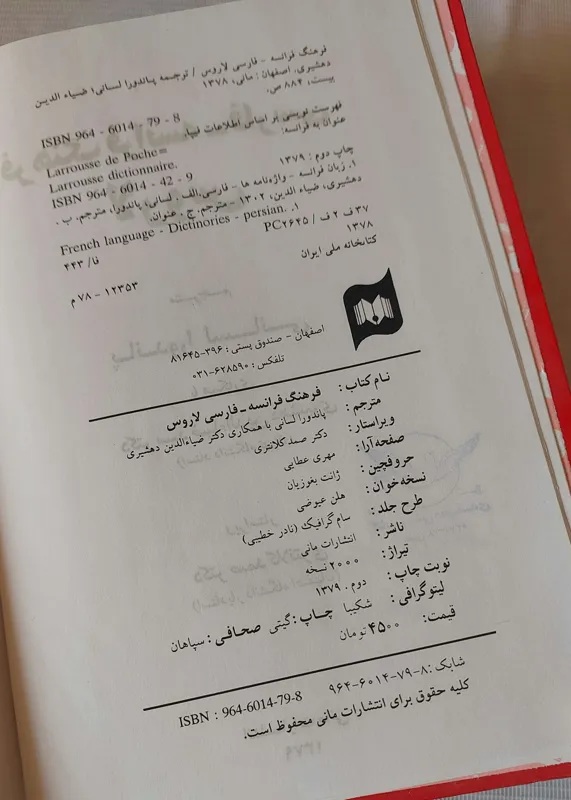 فرهنگ فرانسه - فارسی لاروس / ترجمه پاندورا لسانی؛ ضیاء الدین
دهشیری. اصفهان: مانی، ۱۳۷۸
بیست، ۸۸۴ ص.
ISBN 964 - 6014 - 79 - 8
فهرست نویسی بر اساس اطلاعات فیپا.
عنوان به فرانسه:
Larrousse de Poche=
Larrousse dictionnaire.
ISBN 964 - 6014 - 42 - 9
چاپ دوم: ۱۳۷۹
۱. زبان فرانسه - واژه‌نامه ها - فارسی.الف. لسانی، پاندورا، مترجم. ب.
دهشیری، ضیاء الدین، ۱۳۰۲ - مترجم. ج. عنوان.
French language - Dictinories - persian. .۱
۳۷ف ۲ ف / PC۲۶۴۵
۱۳۷۸
فا/ ۴۴۳
کتابخانه ملی ایران
۱۲۳۵۳ - ۷۸ م
اصفهان - صندوق پستی: ۳۹۶-۸۱۶۴۵
تلفکس: ۶۲۸۵۹۰-۰۳۱
نام کتاب: فرهنگ فرانسه - فارسی لاروس
مترجم: پاندورا لسانی با همکاری دکتر ضیاءالدین دهشیری
ویراستار: دکتر صمد کلانتری
صفحه‌آرا: مهری عطایی
حروفچین: ژانت بغوزیان
نسخه‌خوان: هلن عیوضی
طرح جلد: سام گرافیک (نادر خطیبی)
ناشر: انتشارات مانی
تیراژ: ۲۰۰۰ نسخه
نوبت چاپ: دوم. ۱۳۷۹
لیتوگرافی: شکیبا چاپ: گیتی صحافی: سپاهان
قیمت: ۴۵۰۰ تومان
شابک: ۸-۷۹-۶۰۱۴-۹۶۴
ISBN : 964-6014-79-8
کلیه حقوق برای انتشارات مانی محفوظ است.